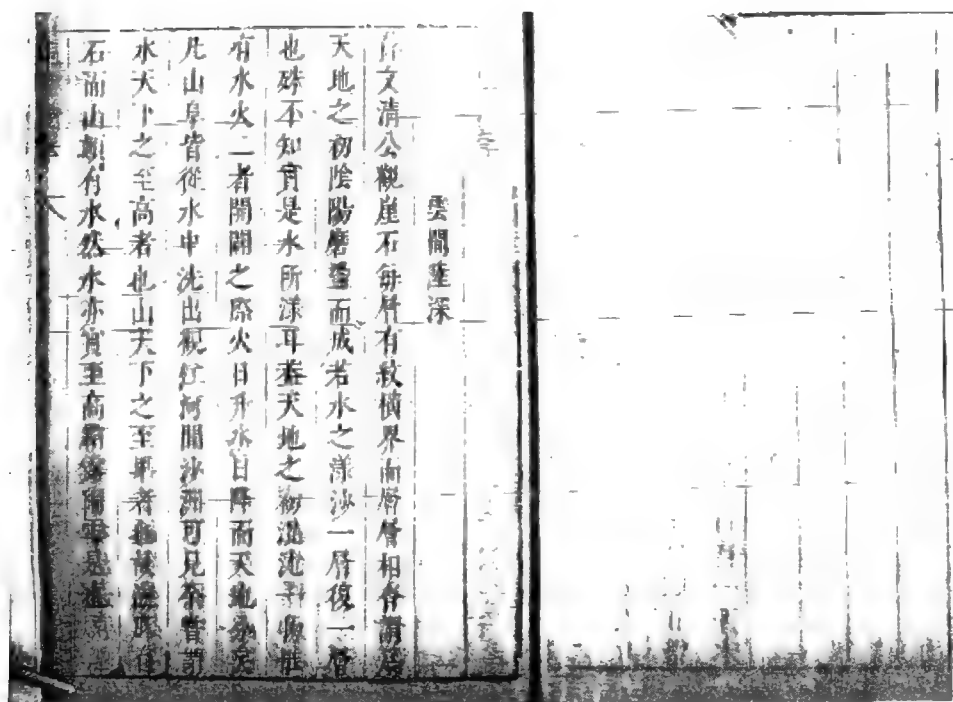 雲間陸深
薛文清公觀崖石每層有紋橫界而層層相沓謂是
天地之初陰陽磨盪而成若水之漾沙一層復一層
也殊不知實是水所漾耳蓋天地之初混沌一物
有水火二者開闢之際火日升水日降而天地分矣
凡山阜皆從水中洗出觀江河間沙洲可見 嘗謂
水天下之至高者也山天下之至卑者也
石而山巔有水然水亦實至高霜露雨雪是